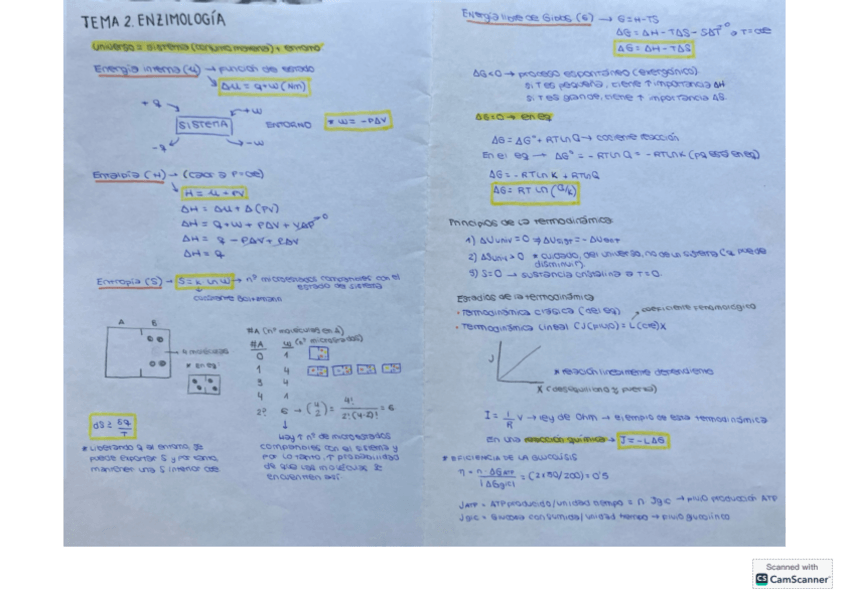 TEMA 2. ENZIMOLOGÍA
Universo = sistema (conjunto materia) + entorno
Energía interna (U) → función de estado
ΔU = q + w (Nm)
+q
+w
SISTEMA
ENTORNO
* w = -PΔV
-q
-w
Entalpía (H) → (calor a P=cte)
H = U + PV
ΔH = ΔU + Δ(PV)
ΔH = q + w + PΔV + VΔP⁰
ΔH = q - PΔV + PΔV
ΔH = q
Entropía (S) → S = K ln W → nº microestados compatibles con el
estado de sistema
constante Boltzmann
A B
4 moléculas
* En eq
#A (nº moléculas en A)
#A W (nº microestados)
0 1
1 4
3 4
4 1
2? 6 → (4 2) = 4! / 2!(4-2)! = 6
Hay ↑ nº de microestados
compatibles con el sistema y
por lo tanto, ↑ probabilidad
de que las moléculas se
encuentren así
dS ≥ δq / T
* Liberando q al entorno, se
puede exportar S y por tanto
mantener una S interior cte
Energía libre de Gibbs (G) → G = H - TS
ΔG = ΔH - TΔS - SΔT⁰ a T=cte
ΔG = ΔH - TΔS
ΔG<0 → proceso espontáneo (exergónico)
Si T es pequeña, tiene ↑ importancia ΔH
Si T es grande, tiene ↑ importancia ΔS
ΔG=0 → en eq
ΔG = ΔG° + RT ln Q → cociente reacción
En el eq → ΔG° = -RT ln Q = -RT ln K (pq está en eq)
ΔG = -RT ln K + RT ln Q
ΔG = RT ln (Q/K)
Principios de la termodinámica
1) ΔUuniv = 0 ⇒ ΔUsist = -ΔUent
2) ΔSuniv > 0 * cuidado, del universo, no de un sistema (S puede
disminuir).
3) S=0 → sustancia cristalina a T=0.
Estadios de la termodinámica
· Termodinámica clásica (del eq)
coeficiente fenomológico
· Termodinámica lineal (J(flujo) = L(cte)X
J
* relación linealmente dependiente
X (desequilibrio y fuerza)
I = 1/R V → ley de Ohm → ejemplo de esta termodinámica
En una reacción química → J = -LΔG
* EFICIENCIA DE LA GLUCÓLISIS
η = n · ΔG ATP / |ΔG glc| = (2×50/200) = 0'5
J ATP = ATP producido/unidad tiempo = n · J glc → flujo producción ATP
J glc = Glucosa consumida/unidad tiempo → flujo glucolítico
Scanned with
CS CamScanner